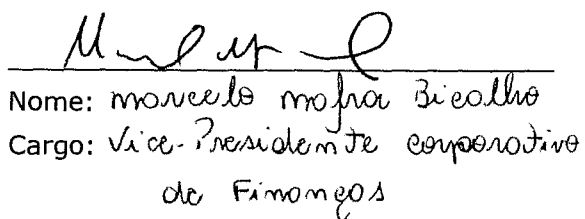 Nome: Marcelo Mafra Bicalho
Cargo: Vice-Presidente Corporativo
de Finanças